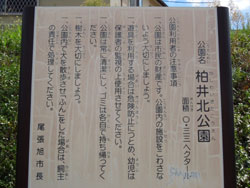 公園名
柏井北公園
面積 〇・三三ヘクタール
公園利用者の注意事項
一、公園は市民の財産です。公園内の施設をこわさな
いよう大切にしましょう。
一、遊具を利用する場合は危険防止につとめ、幼児は
保護者の監視の上使用させてください。
一、公園は常に清潔にし、ゴミは各自で持ち帰ってく
ださい。
一、樹木を大切にしましょう。
一、公園内で犬を散歩させ「ふん」をした場合は、飼主
の責任で処理してください。
尾張旭市長